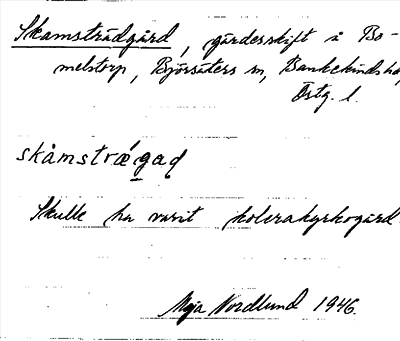 Skamsträdgård, gärdesskift å Bo-
melstorp, Björsäters sn, Bankekinds hd,
Östg. l.
skåmstrǽgaḍ
Skulle ha varit kolerakyrkogård.
Maja Nordlund 1946.